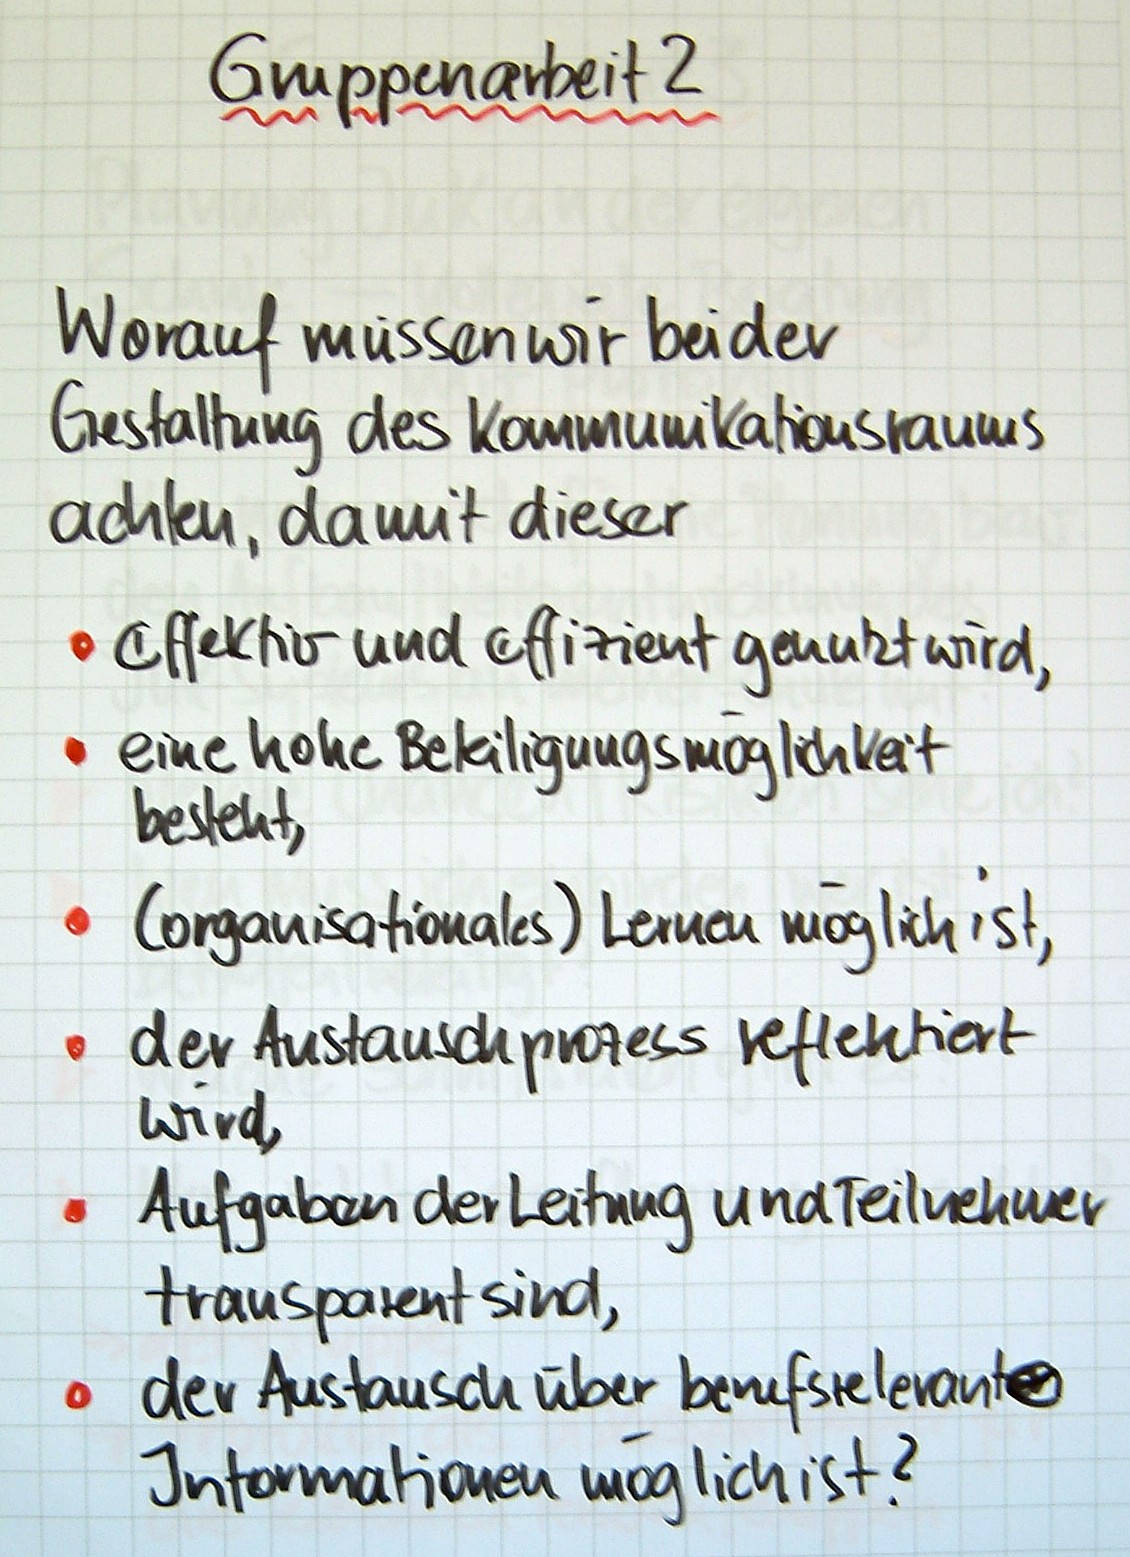 Gruppenarbeit 2
Worauf müssen wir bei der
Gestaltung des Kommunikationsraums
achten, damit dieser
• effektiv und effizient genutzt wird,
• eine hohe Beteiligungsmöglichkeit
besteht,
• (organisationales) Lernen möglich ist,
• der Austauschprozess reflektiert
wird,
• Aufgaben der Leitung und Teilnehmer
transparent sind,
• der Austausch über berufsrelevante
Informationen möglich ist?